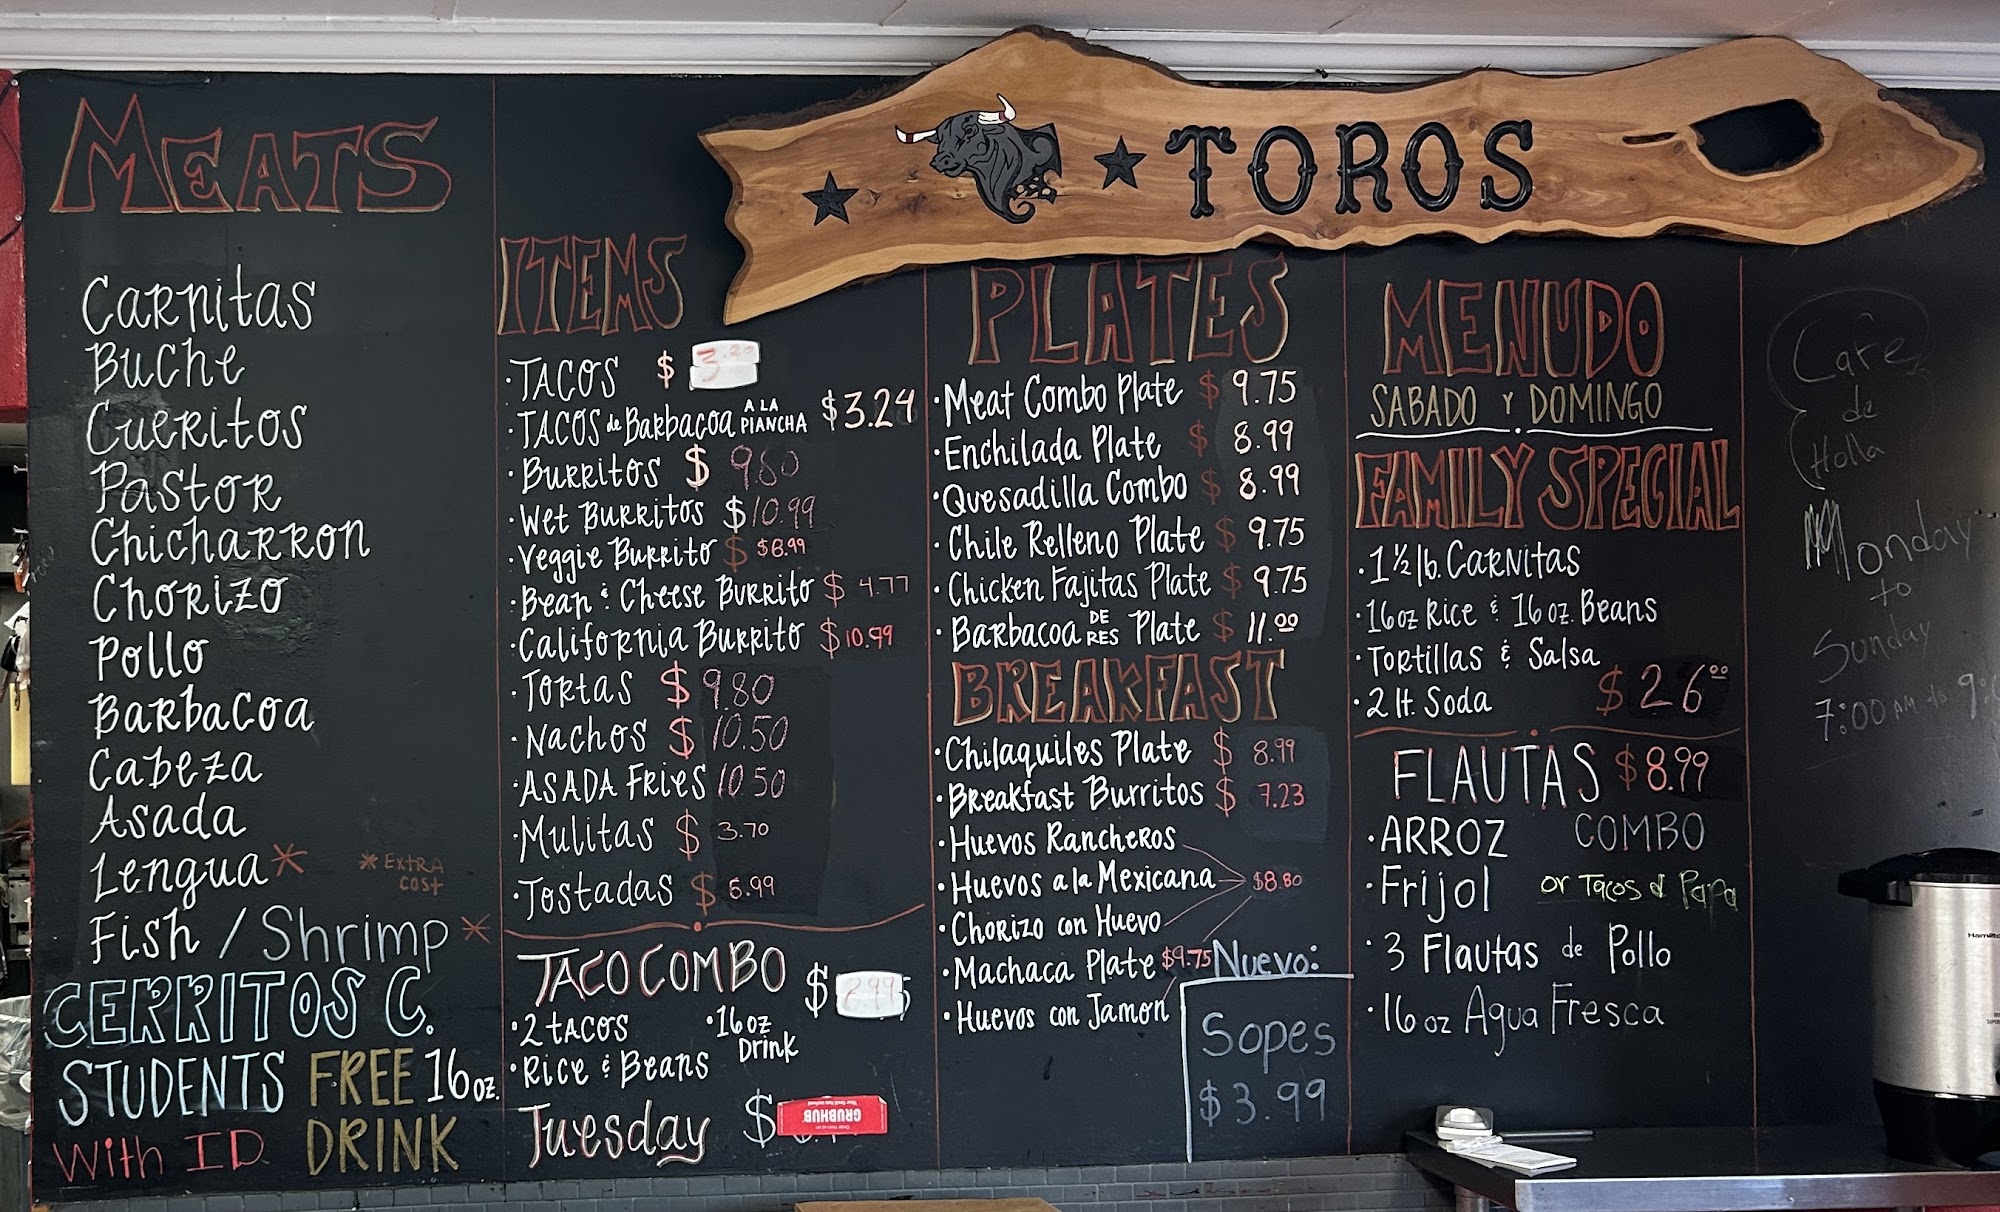 TOROS
MEATS
Carnitas
Buche
Cueritos
Pastor
Chicharron
Chorizo
Pollo
Barbacoa
Cabeza
Asada
Lengua*
* EXTRA
COST
Fish / Shrimp *
CERRITOS C.
STUDENTS FREE 16 oz.
With ID DRINK
ITEMS
· TACOS $ 3.20
· TACOS de Barbacoa A LA PLANCHA $3.24
· Burritos $ 9.80
· Wet Burritos $10.99
· Veggie Burrito $ $8.99
· Bean & Cheese Burrito $ 4.77
· California Burrito $10.99
· Tortas $ 9.80
· Nachos $ 10.50
· ASADA Fries 10.50
· Mulitas $ 3.70
· Tostadas $ 6.99
TACO COMBO $
· 2 tacos
· 16 oz Drink
· Rice & Beans
Tuesday $
GRUBHUB
PLATES
· Meat Combo Plate $ 9.75
· Enchilada Plate $ 8.99
· Quesadilla Combo $ 8.99
· Chile Relleno Plate $ 9.75
· Chicken Fajitas Plate $ 9.75
· Barbacoa DE RES Plate $ 11.00
BREAKFAST
· Chilaquiles Plate $ 8.99
· Breakfast Burritos $ 7.23
· Huevos Rancheros
· Huevos a la Mexicana $8.80
· Chorizo con Huevo
· Machaca Plate $9.75
· Huevos con Jamon
Nuevo:
Sopes
$3.99
MENUDO
SABADO Y DOMINGO
FAMILY SPECIAL
· 1½ lb. Carnitas
· 16 oz Rice & 16 oz. Beans
· Tortillas & Salsa
· 2 lt. Soda $26.00
FLAUTAS $8.99
· ARROZ COMBO
· Frijol or Tacos d Papa
· 3 Flautas de Pollo
· 16 oz Agua Fresca
Cafe
de
Holla
Monday
to
Sunday
7:00 AM to
Hamilton